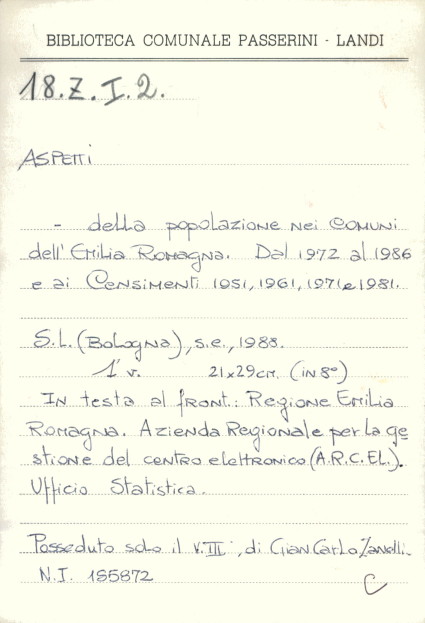 BIBLIOTECA COMUNALE PASSERINI - LANDI
18.Z.I.2.
ASPETTI
- della popolazione nei Comuni
dell'Emilia Romagna. Dal 1972 al 1986
e ai Censimenti 1951, 1961, 1971 e 1981.
S.L. (Bologna), s.e., 1988.
1 v. 21x29 cm. (in 8°)
In testa al front.: Regione Emilia
Romagna. Azienda Regionale per la ge
stione del centro elettronico (A.R.C.EL.).
Ufficio Statistica.
Posseduto solo il v. III, di GianCarlo Zanelli.
N.I. 185872
C